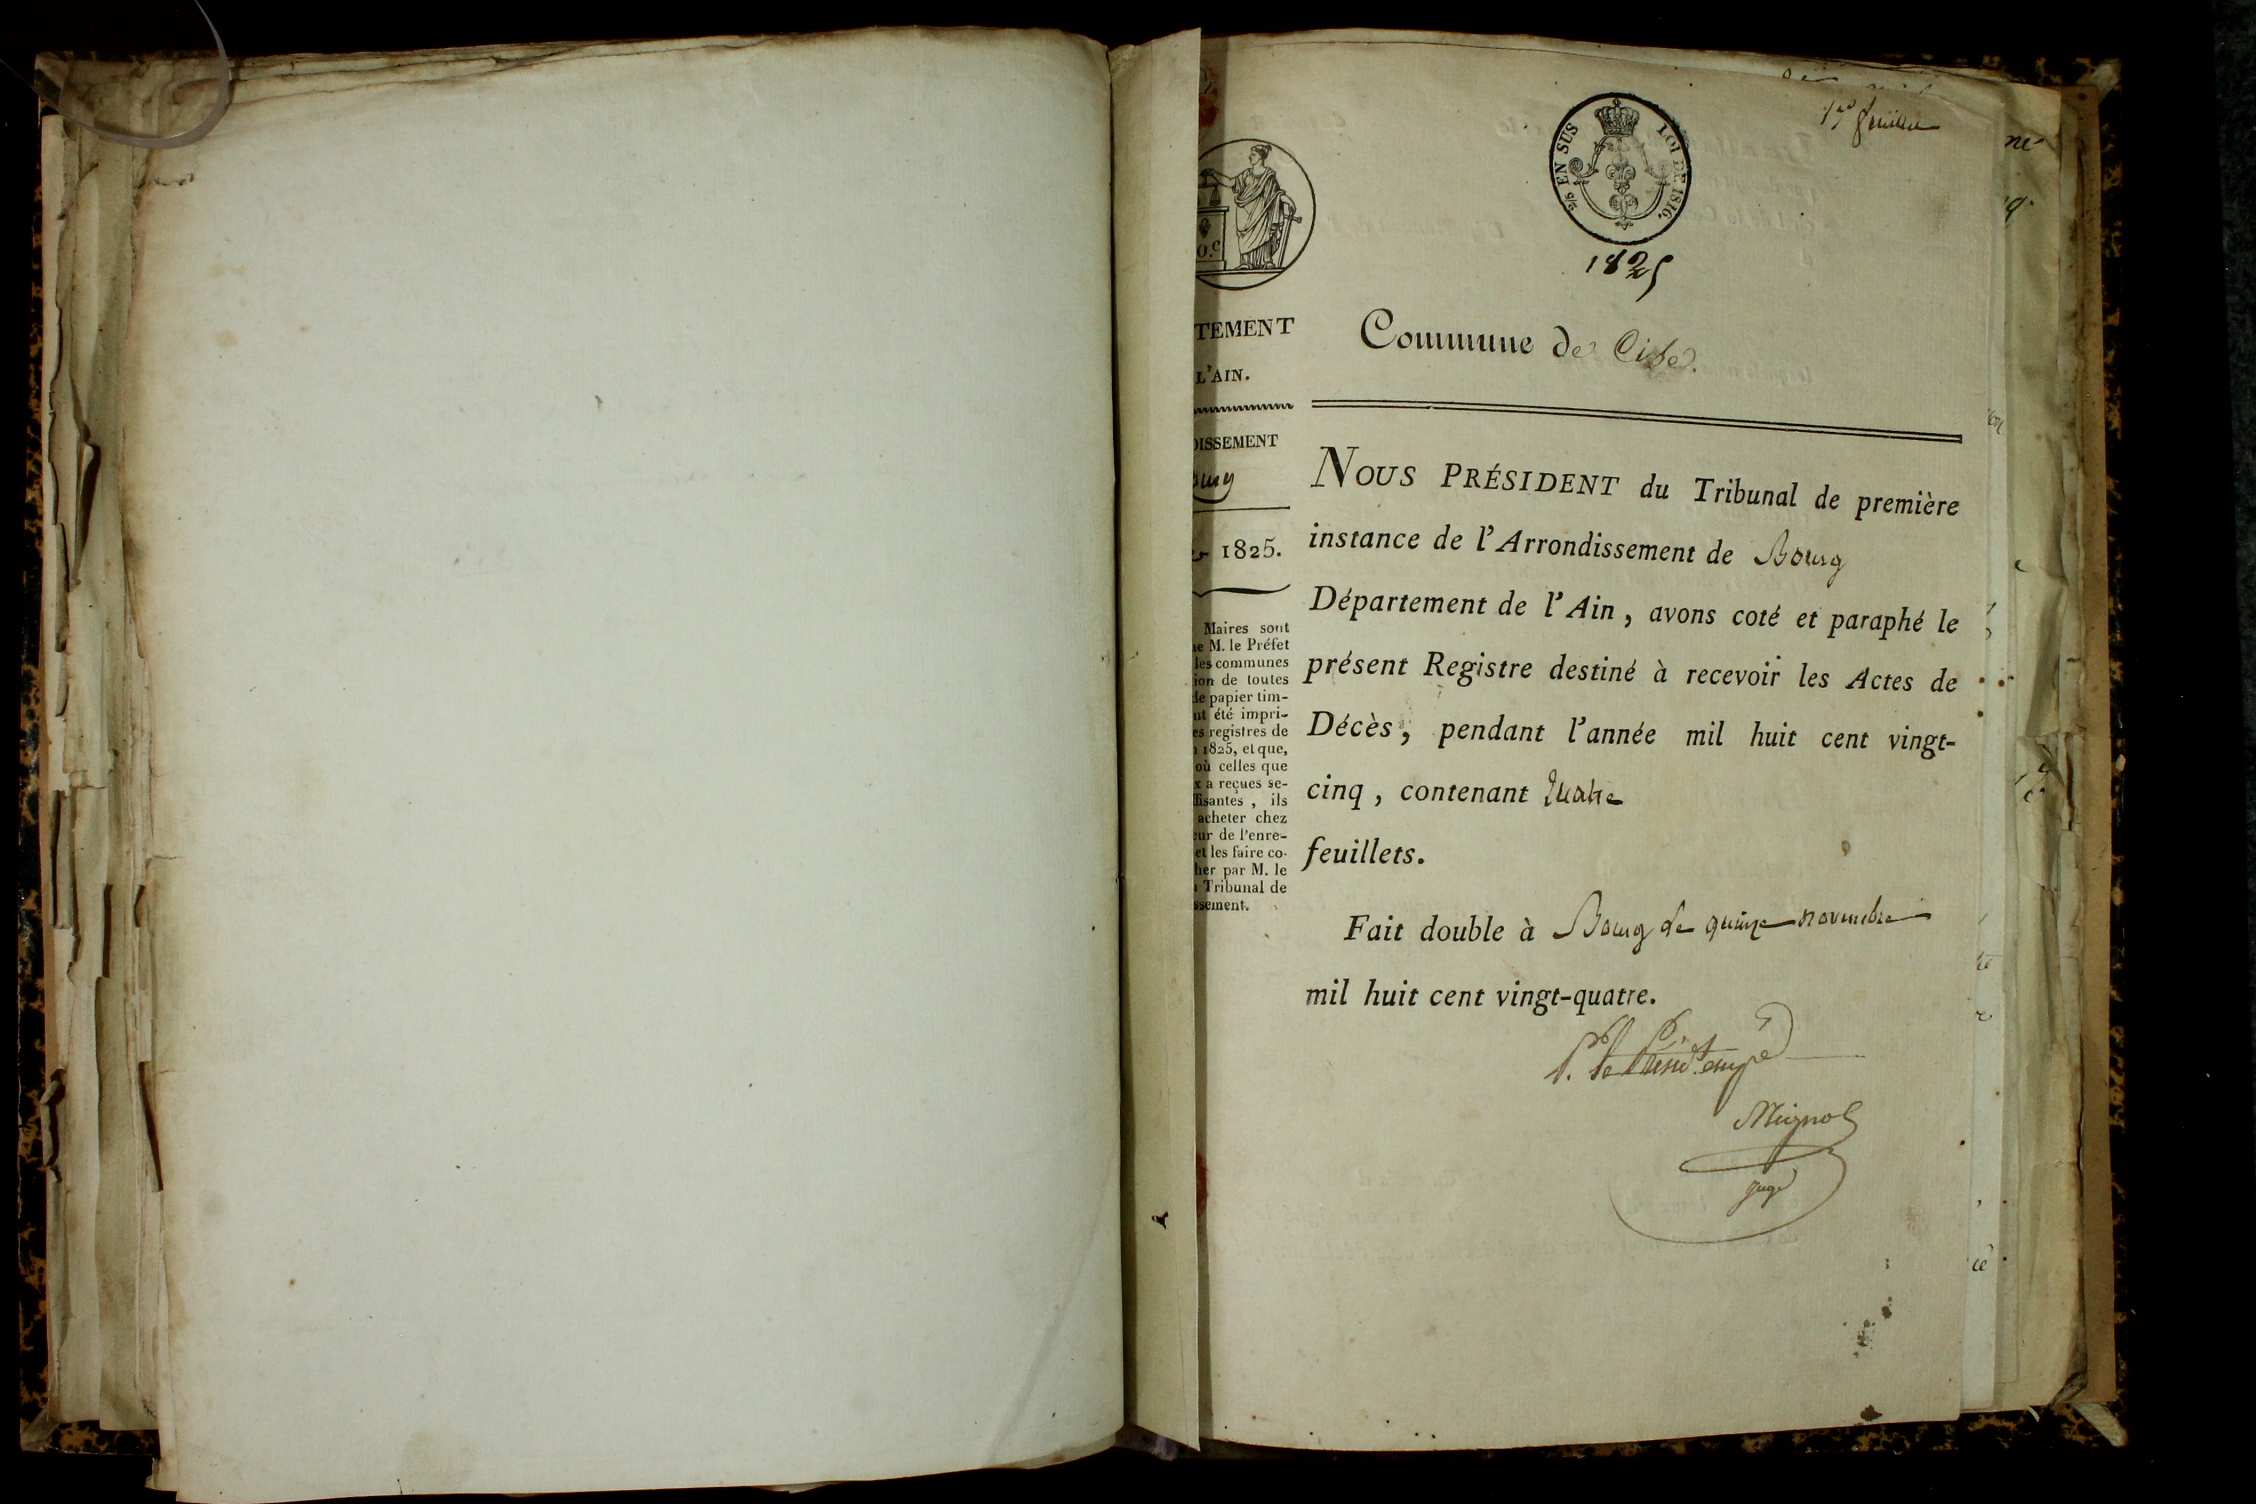 1er feuillet
2/5 EN SUS LOI DE 1816.
1825
Commune de Cise.
TEMENT
L'AIN.
DISSEMENT
ourg
1825.
Maires sont
ue M. le Préfet
les communes
ion de toutes
de papier tim-
nt été impri-
es registres de
1825, et que,
où celles que
x a reçues se-
ffisantes, ils
acheter chez
eur de l'enre-
et les faire co-
her par M. le
Tribunal de
ssement.
NOUS PRÉSIDENT du Tribunal de première
instance de l'Arrondissement de Bourg
Département de l'Ain, avons coté et paraphé le
présent Registre destiné à recevoir les Actes de
Décès, pendant l'année mil huit cent vingt-
cinq, contenant quatre
feuillets.
Fait double à Bourg le quinze novembre
mil huit cent vingt-quatre.
P. le Présidt empé
Mignot
juge